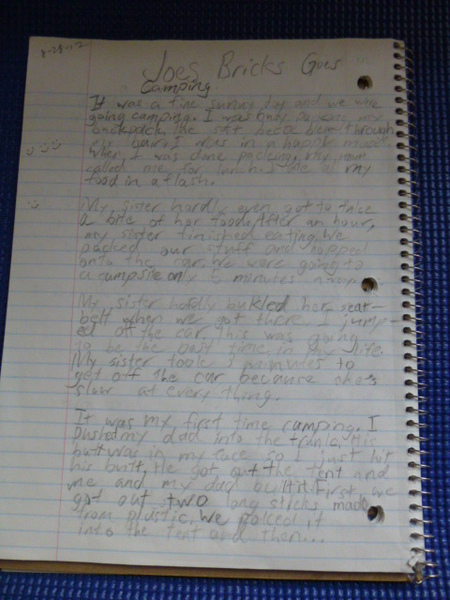 8-28-12
Joes Bricks Goes
Camping
It was a fine sunny day and we were
going camping. I was busy packing my
backpack. the soft breeze blew through
my hair. I was in a happy mood
When I was done packing, my mom
called me for lunch. I ate all my
food in a flash.
My sister hardly even got to take
a bite of her food. After an hour,
my sister finished eating. We
packed our stuff and hopped
onto the car. We were going to
a campsite only 5 minutes away
My sister bardly bukled her seat-
belt when we got there. I jump-
ed off the car, this was going
to be the best time in my life.
My sister took 3 minutes to
get off the car because she's
slow at every thing.
It was my first time camping. I
pushed my dad into the trunk, His
butt was in my face so I just hit
his butt. He got out the tent and
me and my dad built it. First, we
got out two long sticks made
from plastic. We placed it
into the tent and then...